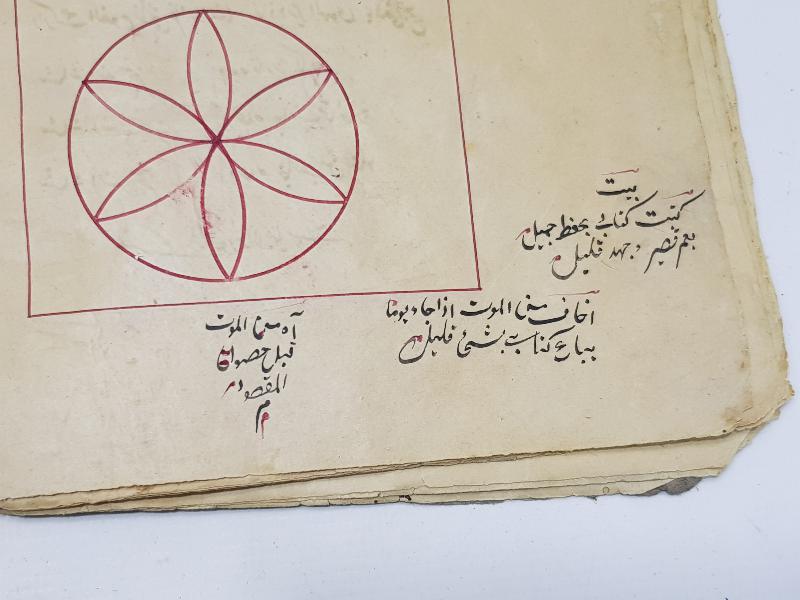 بيت
كتبت كتابي بخط جميل
بعمر قصير وجهد قليل
اخاف من الموت اذا جاء يوما
يباع كتابي بشئ قليل
آه من الموت
قبل حصول
المقصود
م م